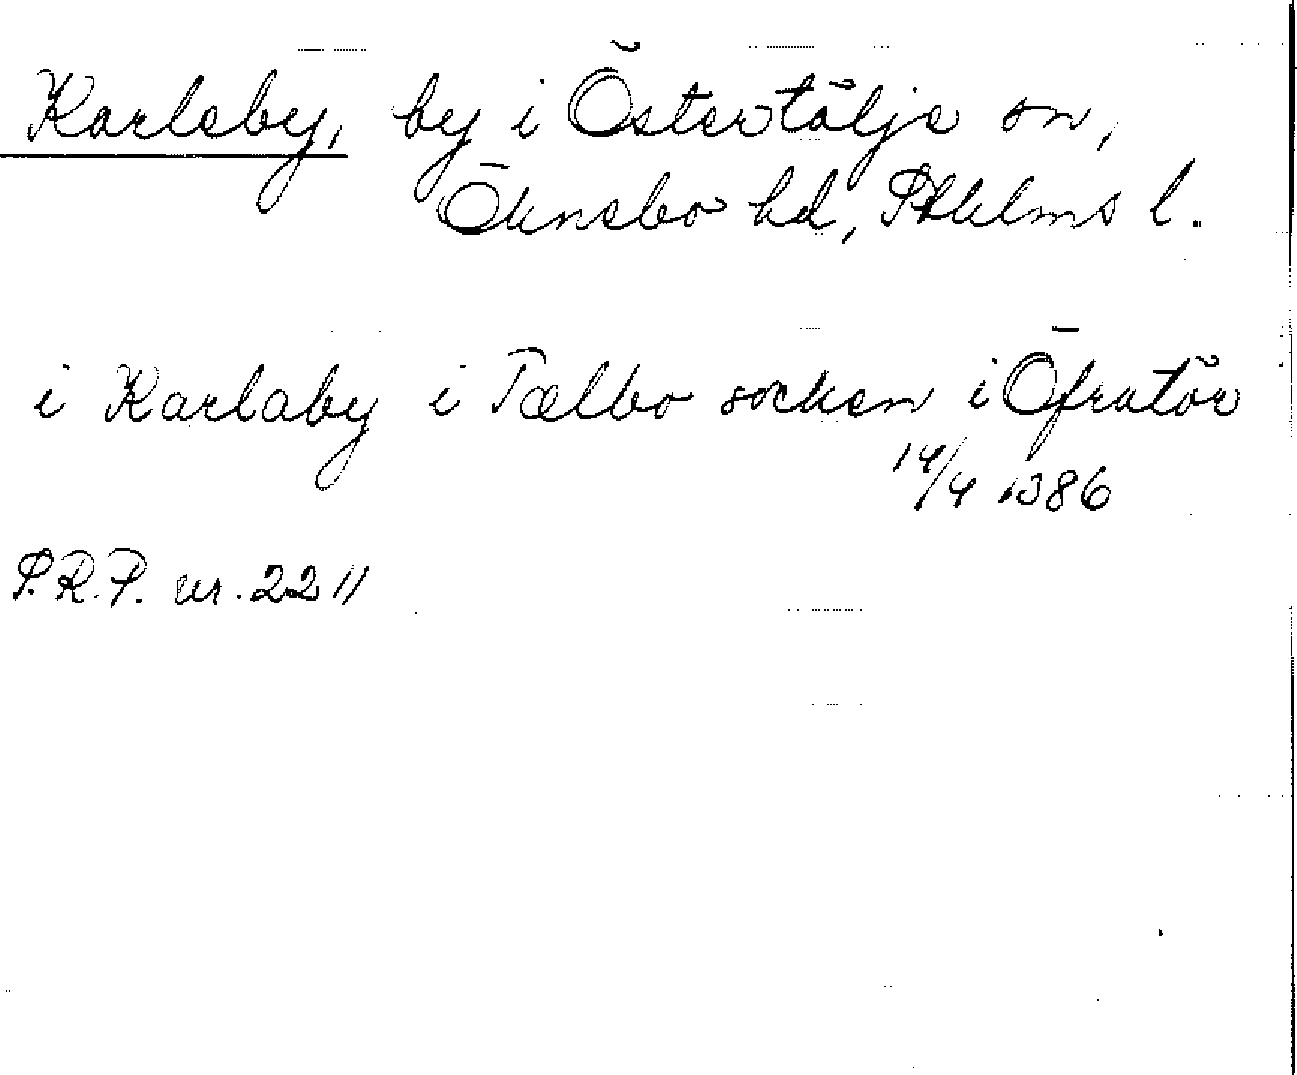 Karleby, by i Östertälje sn,
Öknebo hd, Sthlms l.
i Karlaby i Tælbo socken i Öfratör
14/4 1386
S.R.P. nr. 2211